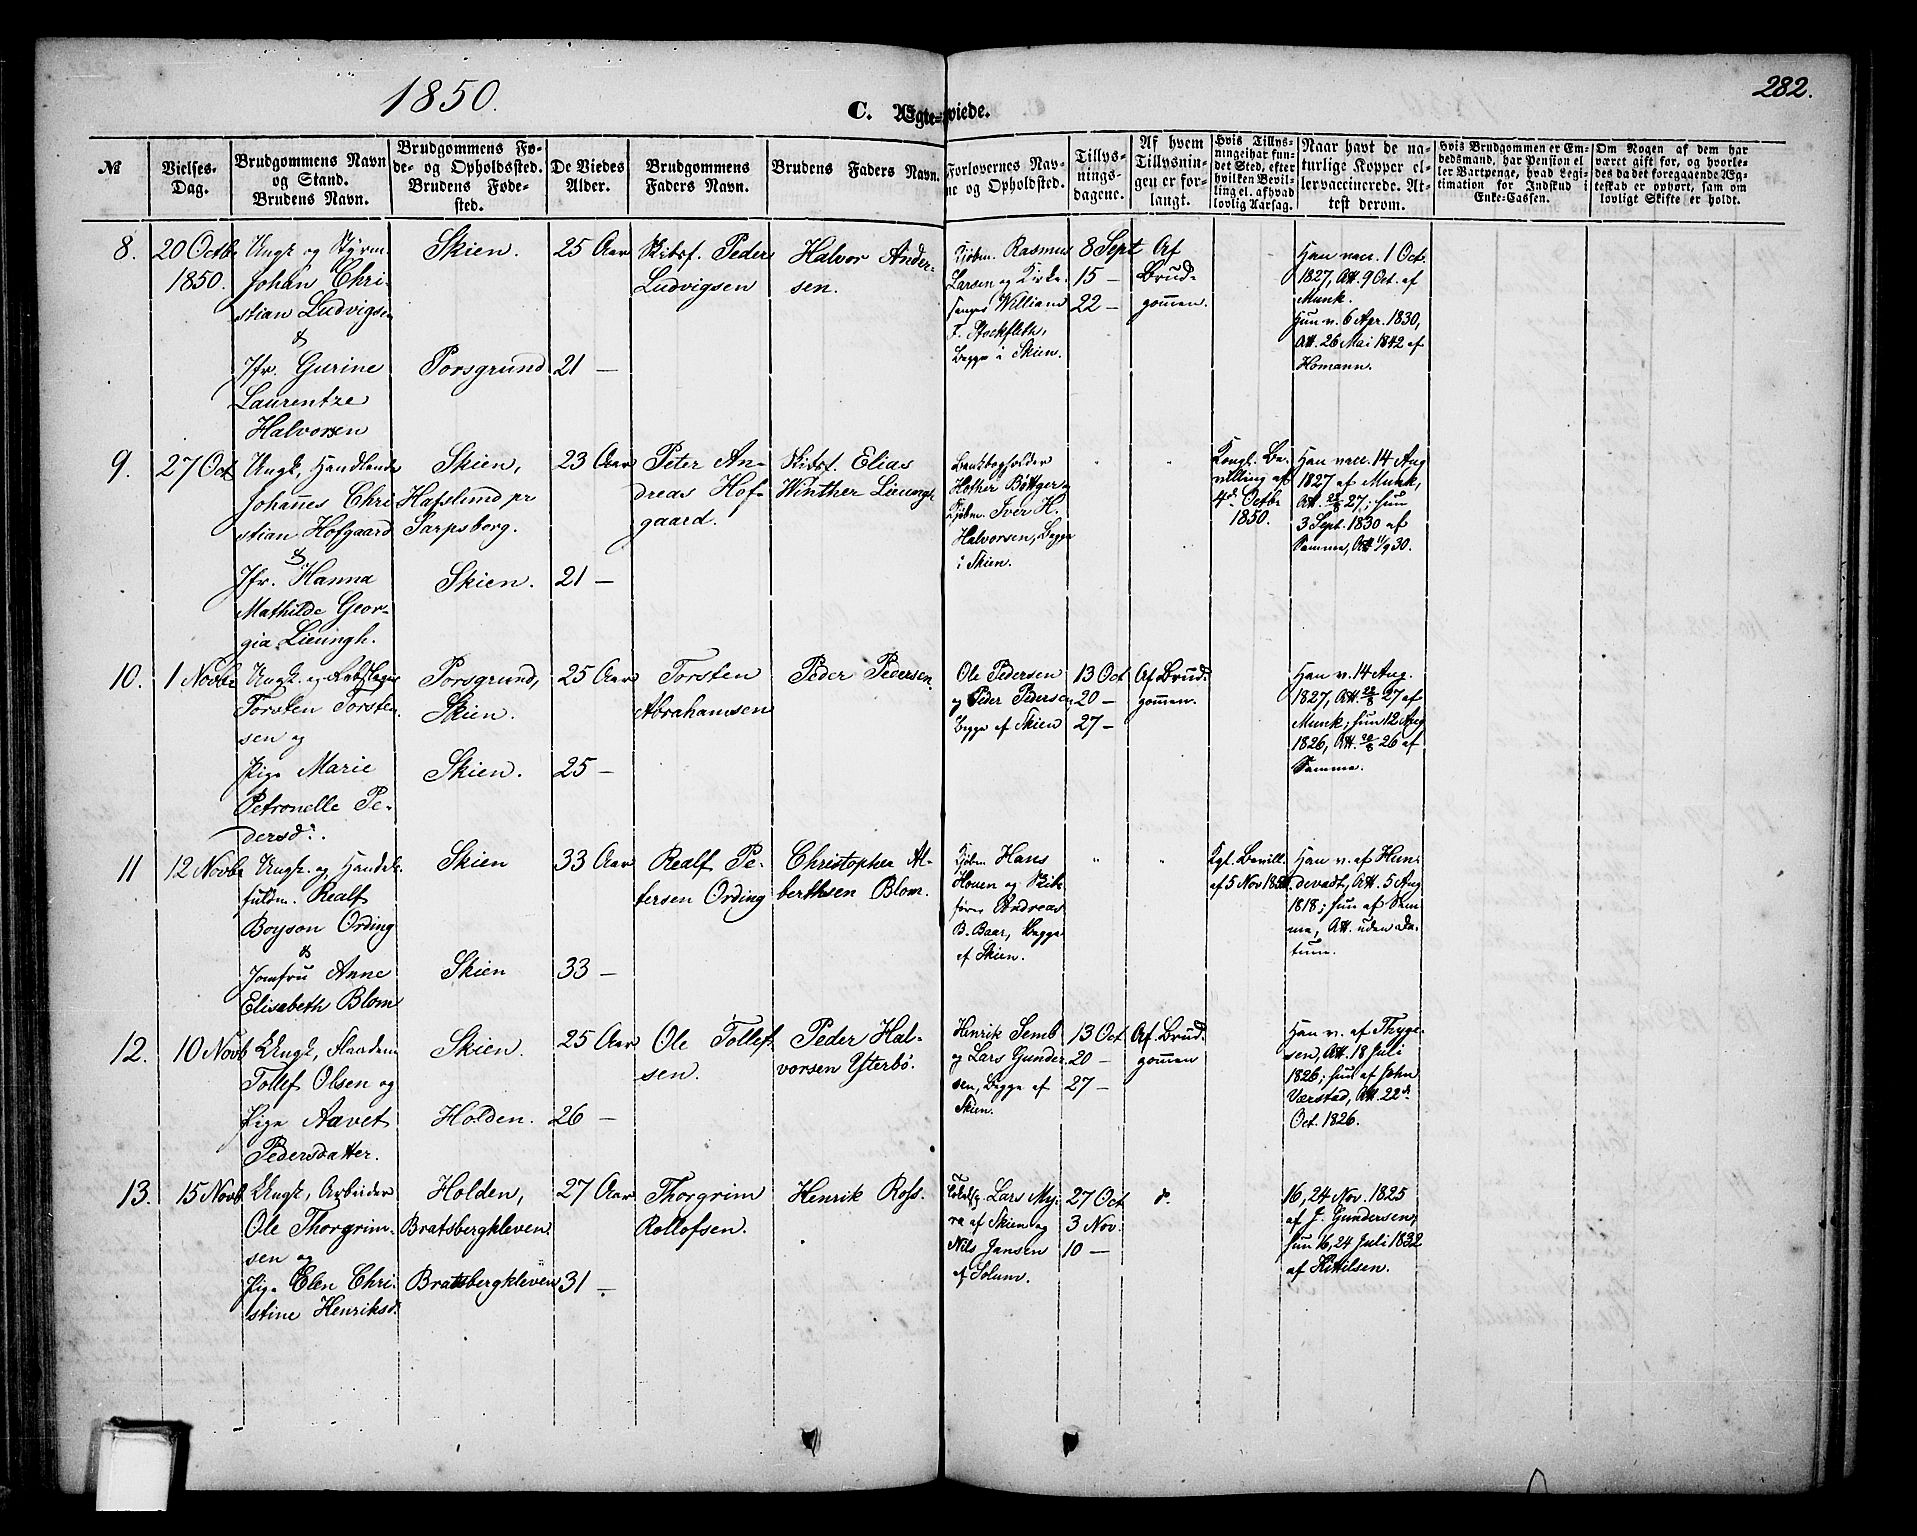 1850.
C. Ægte-viede.
282.
№
Vielses-
Dag.
Brudgommens Navn
og Stand.
Brudens Navn.
Brudgommens Fø-
de- og Opholdssted.
Brudens Føde-
sted.
De Viedes
Alder.
Brudgommens
Faders Navn.
Brudens Faders Navn.
Forlovernes Nav-
ne og Opholdsted.
Tillys-
nings-
dagene.
Af hvem
Tillysnin-
gen er for-
langt.
Hvis Tillys-
ningei har fun-
det Sted, efter
hvilken Bevil-
ling el. af hvad
lovlig Aarsag.
Naar havt de na-
turlige Kopper el-
ler vaccinerede. At-
test derom.
Hvis Brudgommen er Em-
bedsmand, har Pension el-
ler Vartpenge, hvad Legi-
timation for Indskud i
Enke-Cassen.
Om Nogen af dem har
været gift før, og hvorle-
des da det foregaaende Æg-
teskad er ophørt, sam om
lovligt Skifte er holdt.
8.
20 Octbr
1850.
Ungk. og Styrm.
Johan Chri-
stian Ludvigsen
&
Jfr. Gurine
Laurentze
Halvorsen
Skien.
Porsgrund
25 Aar
21 —
Skibsf. Peder
Ludvigsen
Halvor Ander-
sen.
Kjøbm. Rasmus
Larsen og Kirke-
sanger William
F. Stockfleth,
Begge i Skien.
8 Sept
15 —
22 —
Af
Brud-
gommen.
Han vacc. 1 Oct.
1827, Att. 9 Oct. af
Munk.
Hun v. 6 Apr. 1830,
Att. 26 Mai 1842 af
Homann.
9.
27 Oct
Ungk., Handlende
Johannes Chri-
stian Hofgaard
&
Jfr. Hanna
Mathilde Geor-
gia Lieungh.
Skien,
Hafslund pr
Sarpsborg.
Skien.
23 Aar
21 —
Peter An-
dreas Hof-
gaard.
Skibsf. Elias
Winther Lieungh
Hother Bøttger
Kjøbm. Iver H.
Halvorsen, Begge
i Skien.
"
"
Kongl. Be-
villing af
4d. Octbr
1850.
Han vacc. 14 Aug
1827 af Munk,
Att. 28/8 27; hun
3 Sept. 1830 af
Samme, Att 11/9 30.
10.
1 Novbr
Torsten Torsten-
sen og
Pige Marie
Petronelle Pe-
dersd:.
Porsgrund,
Skien.
Skien.
25 Aar
25 —
Torsten
Abrahamsen
Peder Pedersen.
Ole Pedersen
og Peder Pedersen
Begge af Skien
13 Oct
20 —
27 —
Af Brud-
gommen.
Han v. 14 Aug.
1827, Att. 28/8 27 af
Munk; hun 12 Aug
1826, Att. 20/8 26 af
Samme.
11
12 Novbr
Ungk. og Handels-
fuldm. Realf
Boyson Ording
&
Jomfru Anne
Elisabeth Blom
Skien
Skien
33 Aar
33 —
Realf Pe-
tersen Ording
Christopher Al-
berthsen Blom.
Kjøbm. Hans
Houen og Skibs-
fører Andreas
B. Baar, Begge
af Skien.
"
"
Kgl. Bevill.
af 5 Nov 1850.
Han v. af Hun-
devadt, Att. 5 Aug
1818; hun af Sam-
me, Att. uden Da-
tum.
12.
10 Novb
Tollef Olsen og
Pige Aavet
Pedersdatter.
Skien.
Holden.
25 Aar
26 —
Ole Tollef-
sen.
Peder Hal-
vorsen Ytterbö.
Henrik Semb
og Lars Gunder-
sen, Begge af
Skien.
13 Oct
20 —
27 —
Af Brud-
gommen
Han v. af Thyge-
sen, Att. 18 Juli
1826; hun af John
Værstad, Att. 22d
Oct. 1826.
13.
15 Novb
Ungk., Arbeider
Ole Thorgrim-
sen og
Pige Elen Chri-
stine Henriksd.
Holden,
Bratsbergkleven.
Bratsbergkleven
27 Aar
31 —
Thorgrim
Rollofsen.
Henrik Ross.
Lars My-
ra af Skien og
Nils Jansen
af Solum.
27 Oct
3 Nov.
10 —
do.
16, 24 Nov. 1825
af J. Gundersen,
hun 16, 24 Juli 1832
af Kittilsen.